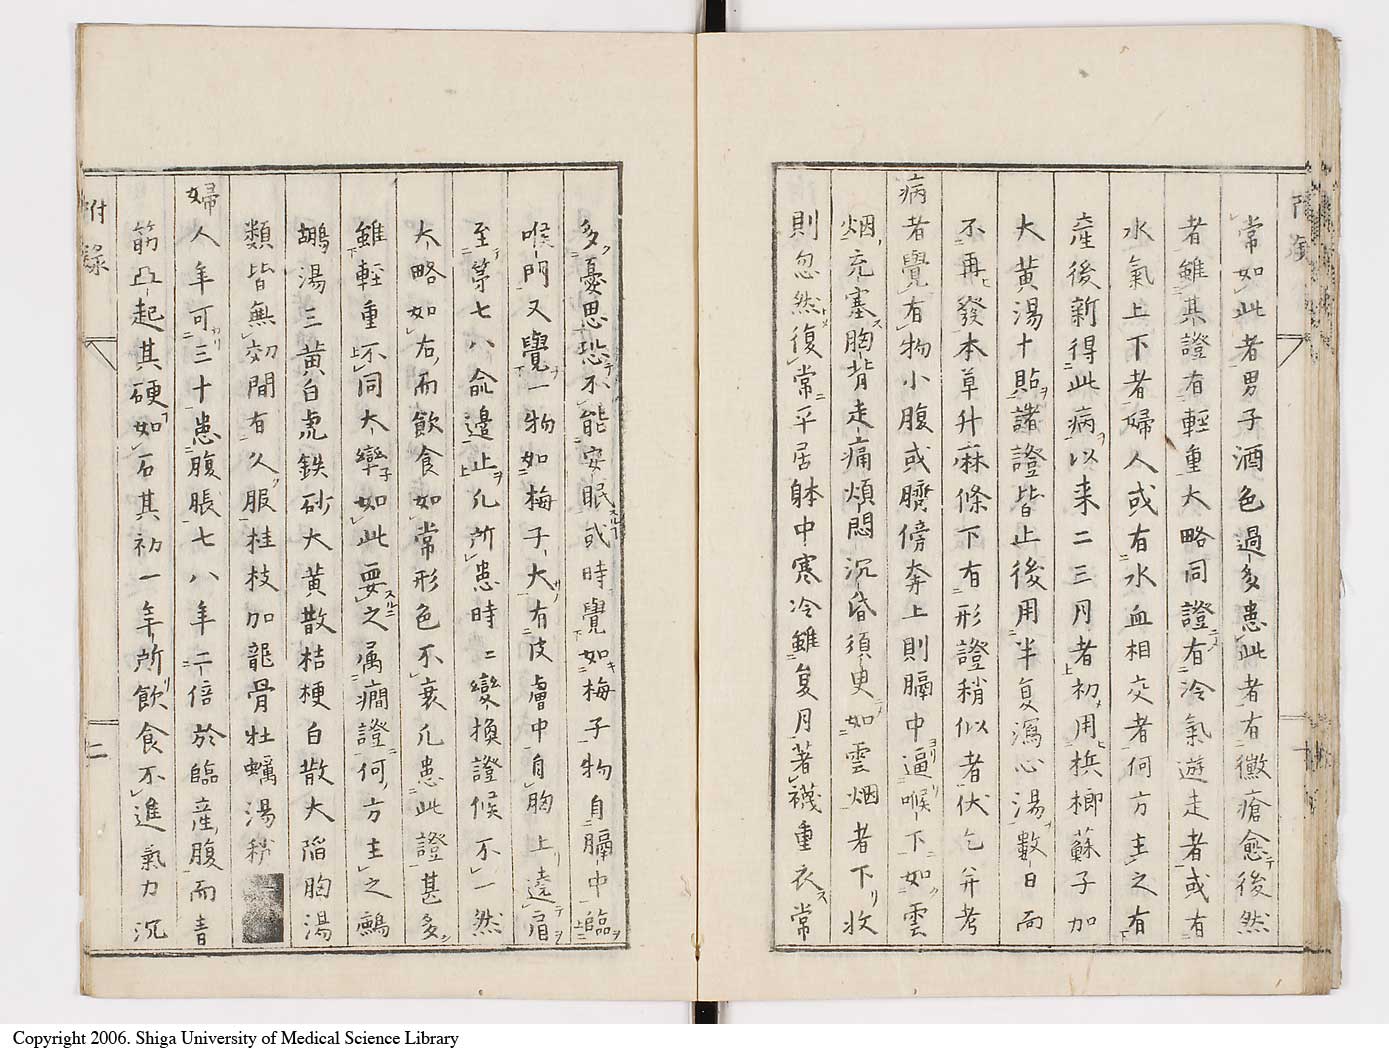 常如此者男子酒色過多患此者有黴瘡愈後然
者雖其證有輕重大略同證有冷氣遊走者或有
水氣上下者婦人或有水血相交者何方主之有
産後新得此病以来二三月者初用梹榔蘇子加
大黄湯十貼諸證皆止後用半夏瀉心湯數日而
不再發本草升麻條下有形證稍似者伏乞并考
病者覺有物小腹或臍傍奔上則膈中逼喉下如雲
烟充塞胸背走痛煩悶沉昏須臾如雲烟者下收
則忽然復常平居躰中寒冷雖夏月著襪重衣常
多憂思恐不能安眠或時覺如梅子物自膈中臨
喉門又覺一物如梅子大有皮膚中自胸上遶肩
至等七八兪邊止凡所患時二變換證候不一然
大略如右而飲食如常形色不衰凡患此證甚多
雖輕重不同大率如此要之属癇證何方主之鷓
鶘湯三黄白虎鉄砂大黄散桔梗白散大陷胸湯
類皆無效間有久服桂枝加龍骨牡蠣湯稍
婦人年可三十患腹脹七八年二倍於臨産腹而青
筋亞起其硬如石其初一年所飲食不進氣力沉
附録
二
Copyright 2006. Shiga University of Medical Science Library